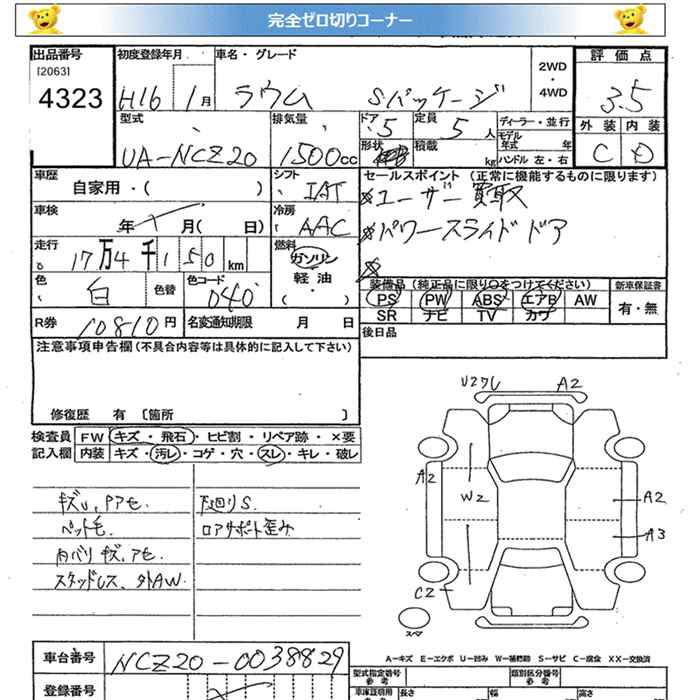 完全ゼロ切りコーナー
出品番号 [2063] 4323
初度登録年月 H16 1月
車名・グレード ラウム Sパッケージ
2WD・4WD
評価点 3.5
外装 内装
C D
型式 UA-NCZ20
排気量 1500cc
ドア 5
定員 5人
ディーラー・並行
形状
積載 kg
モデル年式 年
ハンドル 左・右
車歴 自家用・( )
シフト IAT
セールスポイント (正常に機能するものに限ります)
※ユーザー買取
※パワースライドドア
※
車検 年 月( 日)
冷房 AAC
走行 17万4千150km
燃料 ガソリン 軽油 ・( )
色 白 色替
色コード 040
装備品(純正品に限り○をつけてください)
新車保証書
PS PW ABS エアB AW
有・無
SR ナビ TV カワ
R券 10810円
名変通知期限 月 日
後日品
注意事項申告欄(不具合内容等は具体的に記入して下さい)
修復歴 有 [箇所 ]
検査員 FW キズ・飛石・ヒビ割・リペア跡・×要
記入欄 内装 キズ・汚レ・コゲ・穴・スレ・キレ・破レ
キズU,Pアセ.
下廻りS.
ペット毛.
ロアサポート歪み
内バリキズ,アセ.
スタッドレス、外AW.
A2
A2
W2
A2
A3
C2
スペア
A-キズ E-エクボ U-凹み W-補修跡 S-サビ C-腐食 XX-交換済
車台番号 NCZ20-0038829
登録番号
型式指定番号 参考
類別区分番号 参考
車庫証明用 参考 長さ 幅 高さ